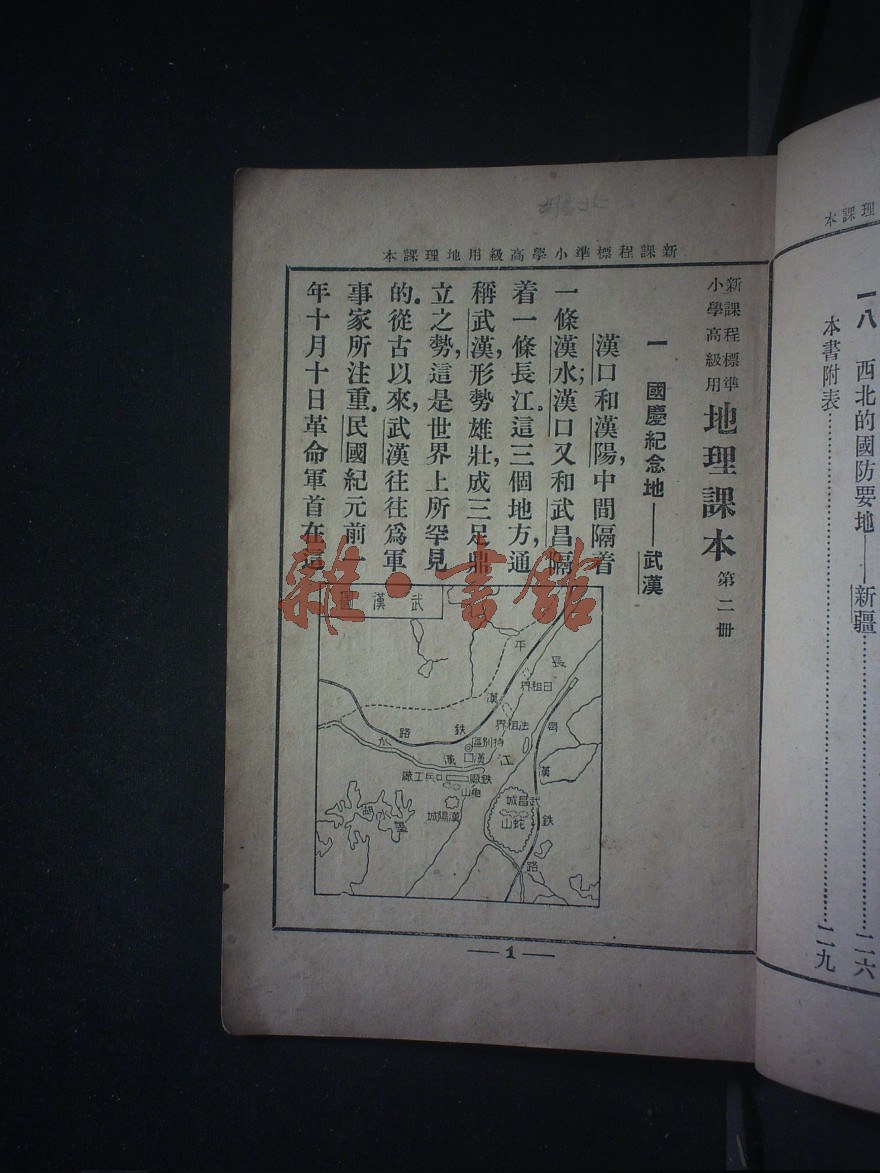 理課本
一八　西北的國防要地——新疆……二六
本書附表……二九
新課程標準小學高級用地理課本
新課程標準
小學高級用
地理課本 第二冊
一　國慶紀念地——武漢
漢口和漢陽，中間隔着
一條漢水；漢口又和武昌隔
着一條長江。這三個地方，通
稱武漢，形勢雄壯，成三足鼎
立之勢，這是世界上所罕見
的。從古以來，武漢往往爲軍
事家所注重。民國紀元前一
年十月十日革命軍首在這
武漢圖
平漢鐵路
長江
日租界
法租界
特別區
漢口
漢水
兵工廠
鐵廠
龜山
漢陽城
武昌城
蛇山
粵漢鐵路
墨水湖
—1—
雜·書館